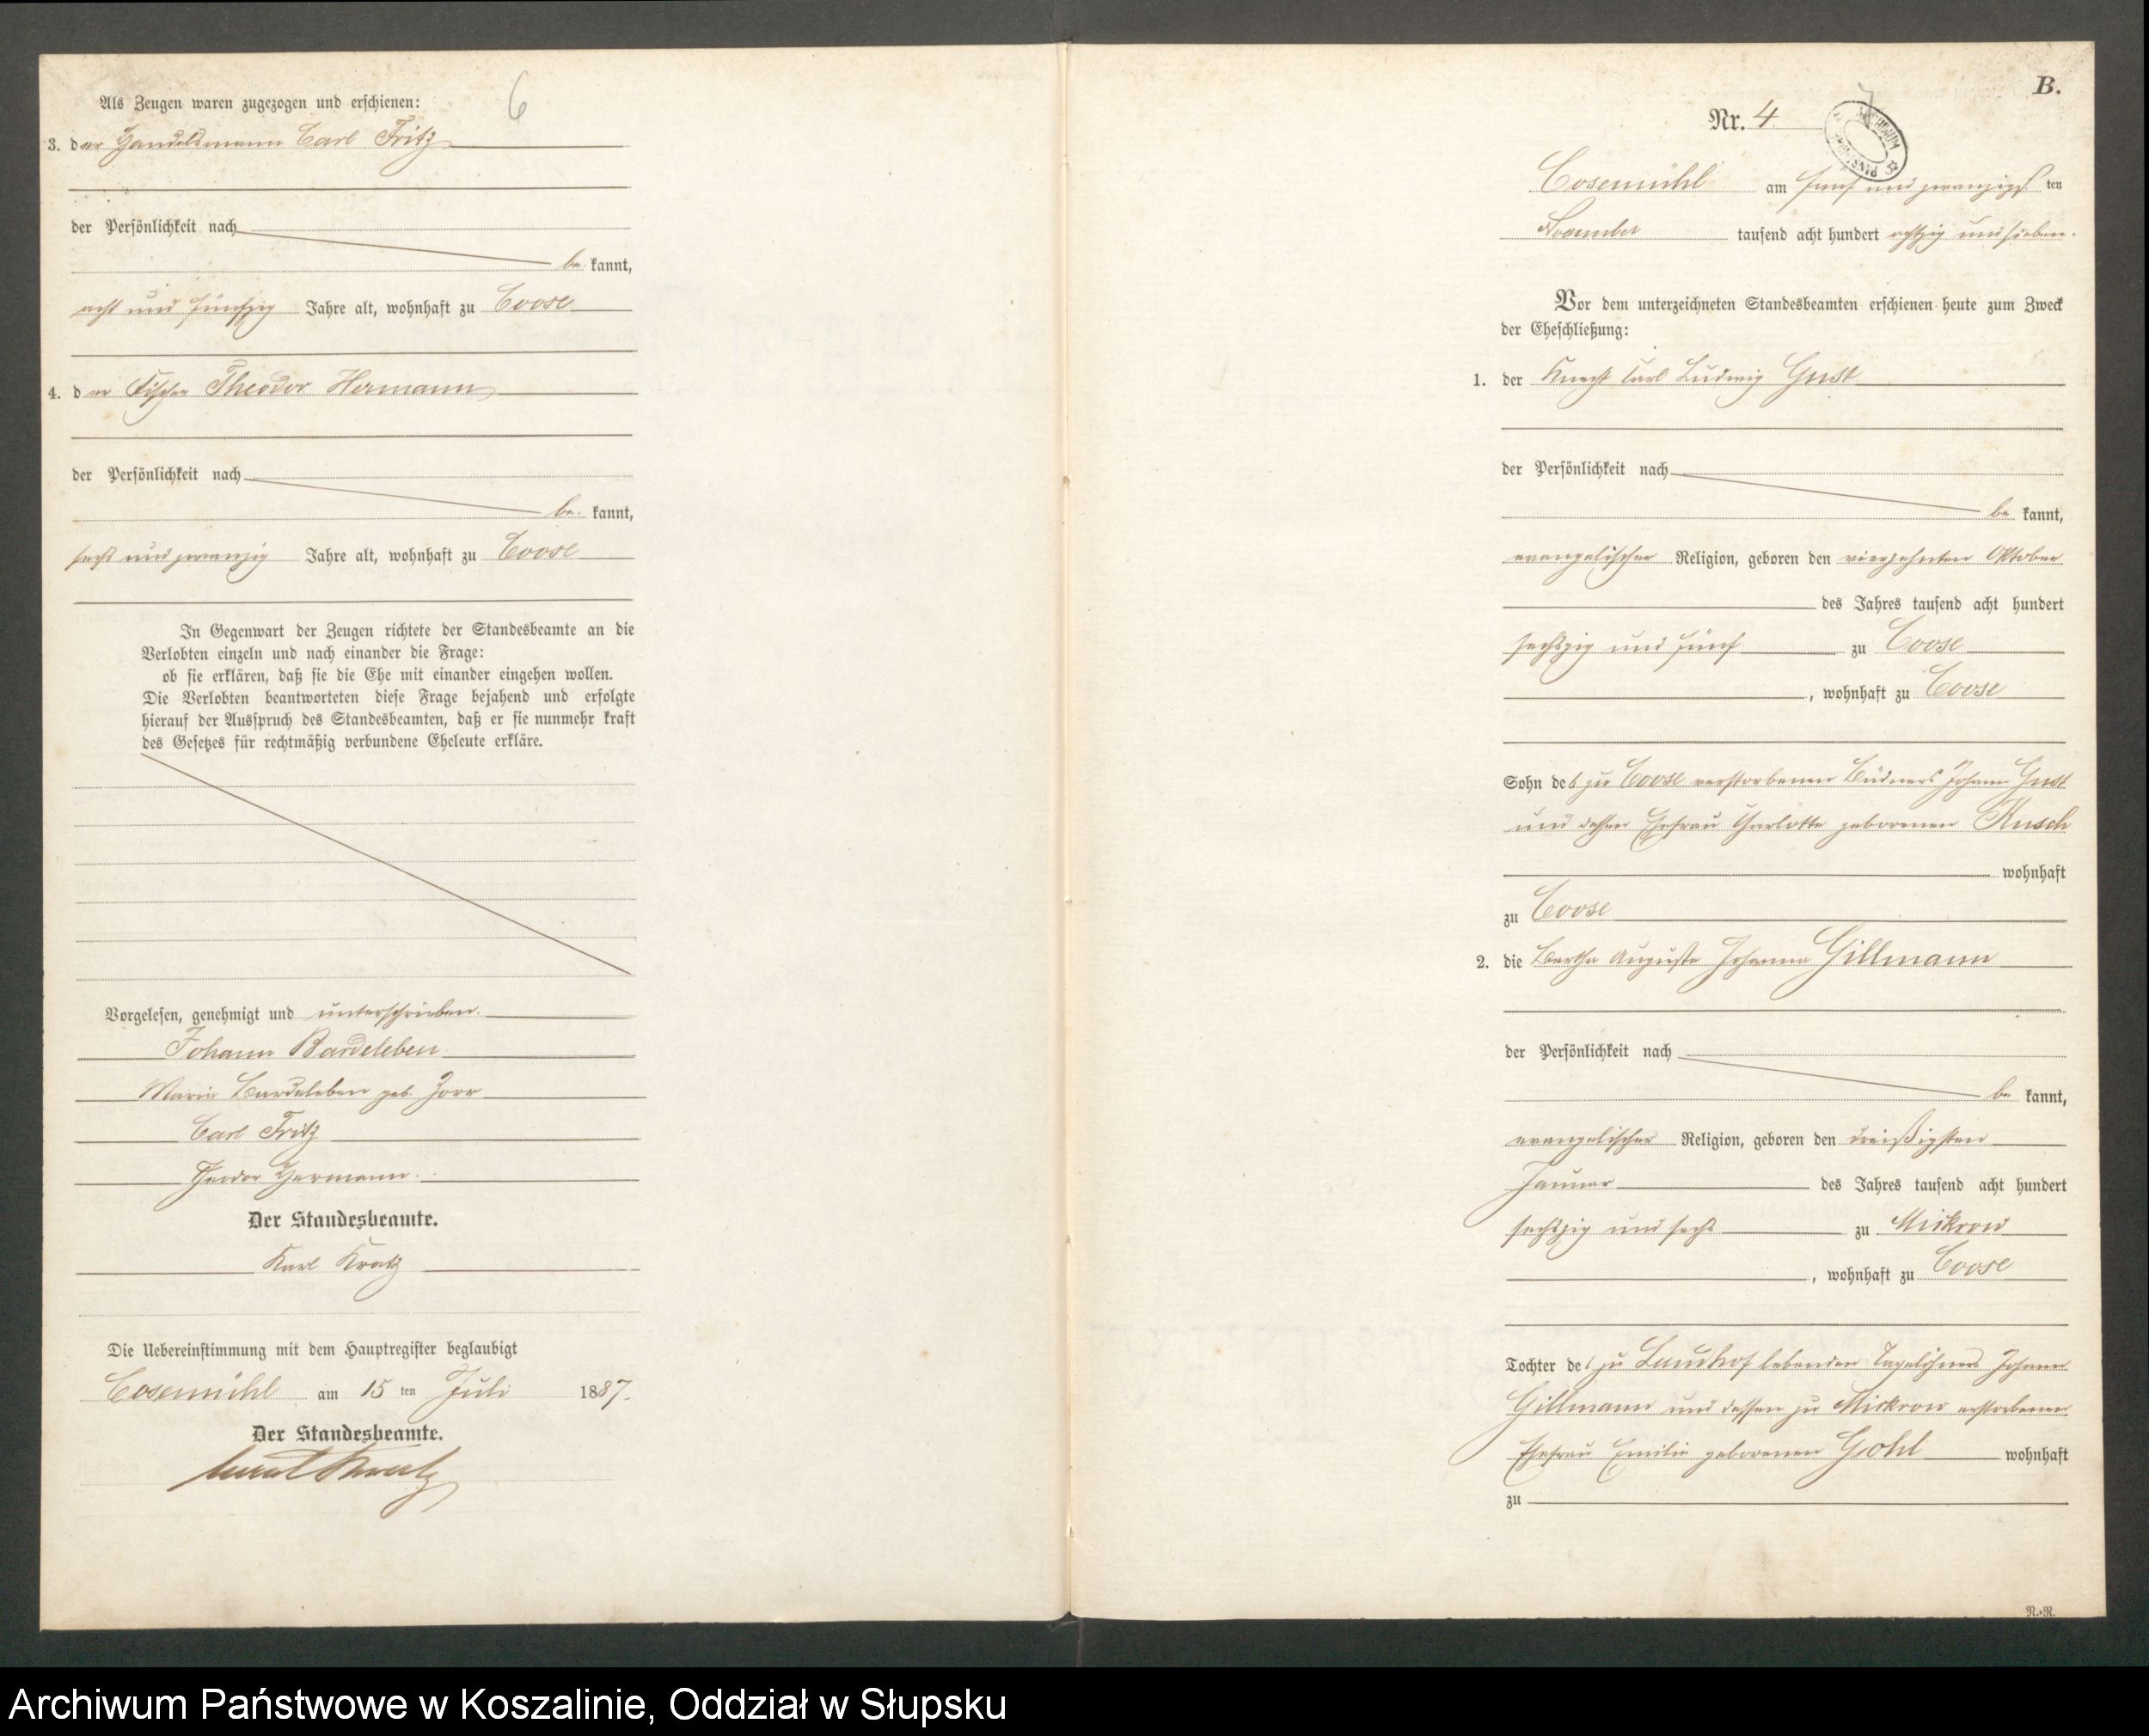 6
Als Zeugen waren zugezogen und erschienen:
3. der Handelsmann Carl Fritz
der Persönlichkeit nach
be kannt,
acht und fünfzig Jahre alt, wohnhaft zu Coose
4. der Fischer Theodor Hermann
der Persönlichkeit nach
be kannt,
sechs und zwanzig Jahre alt, wohnhaft zu Coose
In Gegenwart der Zeugen richtete der Standesbeamte an die
Verlobten einzeln und nach einander die Frage:
ob sie erklären, daß sie die Ehe mit einander eingehen wollen.
Die Verlobten beantworteten diese Frage bejahend und erfolgte
hierauf der Ausspruch des Standesbeamten, daß er sie nunmehr kraft
des Gesetzes für rechtmäßig verbundene Eheleute erkläre.
Vorgelesen, genehmigt und unterschrieben.
Johann Bardeleben
Marie Bardeleben geb. Zorr
Carl Fritz
Theodor Hermann.
Der Standesbeamte.
Karl Kratz
Die Uebereinstimmung mit dem Hauptregister beglaubigt
Cosemühl am 15 ten Juli 1887.
Der Standesbeamte.
B.
Nr. 4.
Cosemühl am fünf und zwanzigs ten
November tausend acht hundert achtzig und sieben.
Vor dem unterzeichneten Standesbeamten erschienen heute zum Zweck
der Eheschließung:
1. der Knecht Carl Ludwig Gust
der Persönlichkeit nach
be kannt,
evangelischer Religion, geboren den vierzehnten Oktober
des Jahres tausend acht hundert
sechszig und fünf zu Coose
, wohnhaft zu Coose
Sohn des zu Coose verstorbenen Büdners Johann Gust
und dessen Ehefrau Charlotte geborenen Kusch
wohnhaft
zu Coose
2. die Bertha Auguste Johanna Gillmann
der Persönlichkeit nach
be kannt,
evangelischer Religion, geboren den dreißigsten
Januar des Jahres tausend acht hundert
sechszig und sechs zu Mickrow
, wohnhaft zu Coose
Tochter des zu Lauthof lebenden Tagelöhners Johann
Gillmann und dessen zu Mickrow verstorbenen
Ehefrau Emilie geborenen Gohl wohnhaft
zu
N.-N.
Archiwum Państwowe w Koszalinie, Oddział w Słupsku